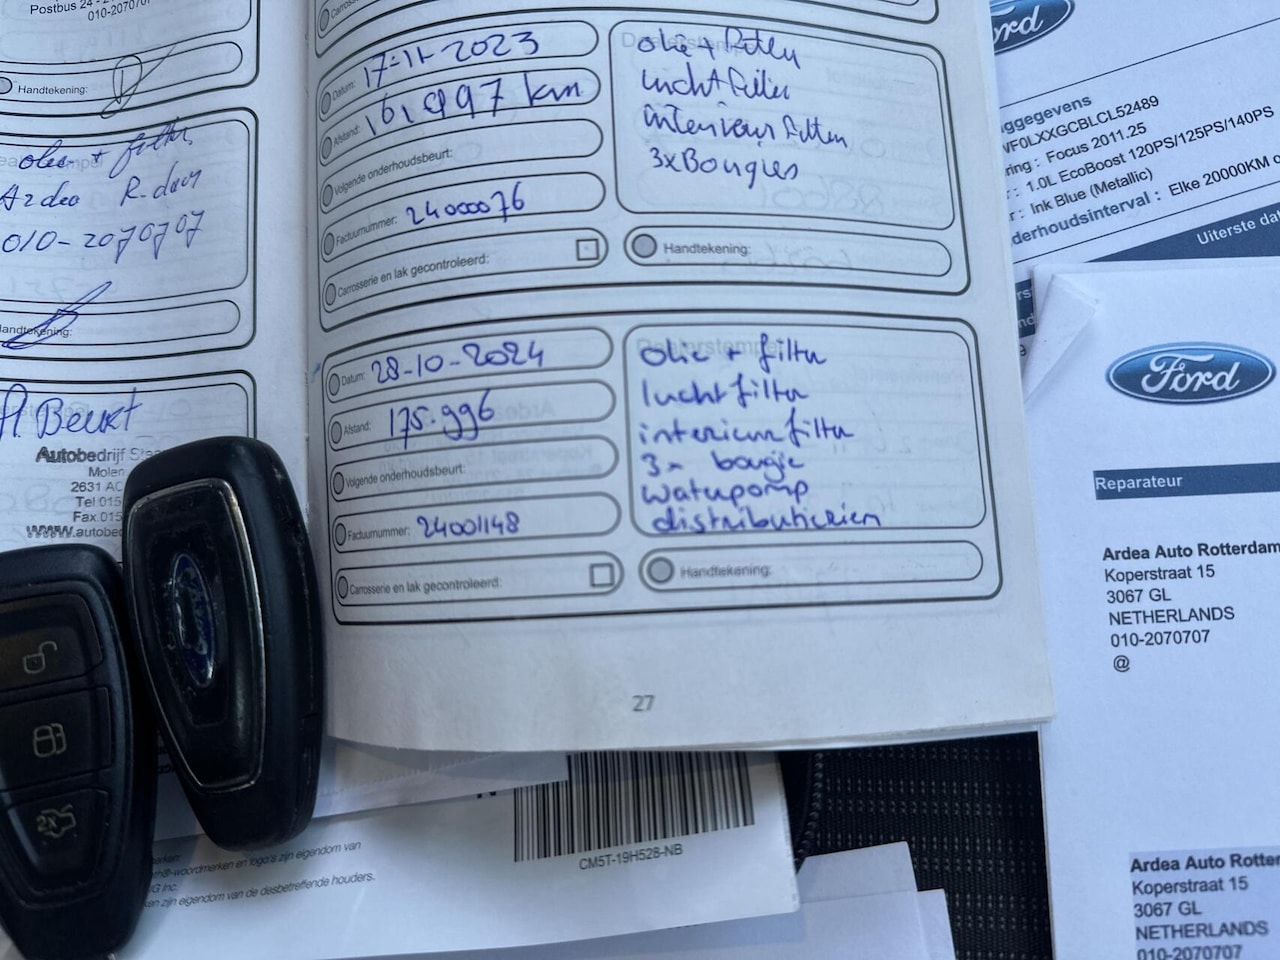 Postbus 24 -
010-2070707
Handtekening:
olie + filter
Ardea R-dam
010-2070707
Handtekening:
A. Beurt
Autobedrijf
Molen
2631 AC
Tel 015
Fax 015
www.autobed
Datum: 17-11-2023
Afstand: 161,997 km
Volgende onderhoudsbeurt:
Factuurnummer: 24000076
Carrosserie en lak gecontroleerd:
olie + filter
luchtfilter
interieurfilter
3x Bougies
Handtekening:
Datum: 28-10-2024
Afstand: 175.996
Volgende onderhoudsbeurt:
Factuurnummer: 24001148
Carrosserie en lak gecontroleerd:
olie + filter
luchtfilter
interieurfilter
3x bougie
waterpomp
distributierien
Handtekening:
27
-woordmerken en logo's zijn eigendom van
G Inc.
en zijn eigendom van de desbetreffende houders.
CM5T-19H528-NB
Ford
ggegevens
WF0LXXGCBLCL52489
ring : Focus 2011.25
: 1.0L EcoBoost 120PS/125PS/140PS
r : Ink Blue (Metallic)
derhoudsinterval : Elke 20000KM o
Uiterste da
Ford
Reparateur
Ardea Auto Rotterdam
Koperstraat 15
3067 GL
NETHERLANDS
010-2070707
@
Ardea Auto Rotter
Koperstraat 15
3067 GL
NETHERLANDS
010-2070707